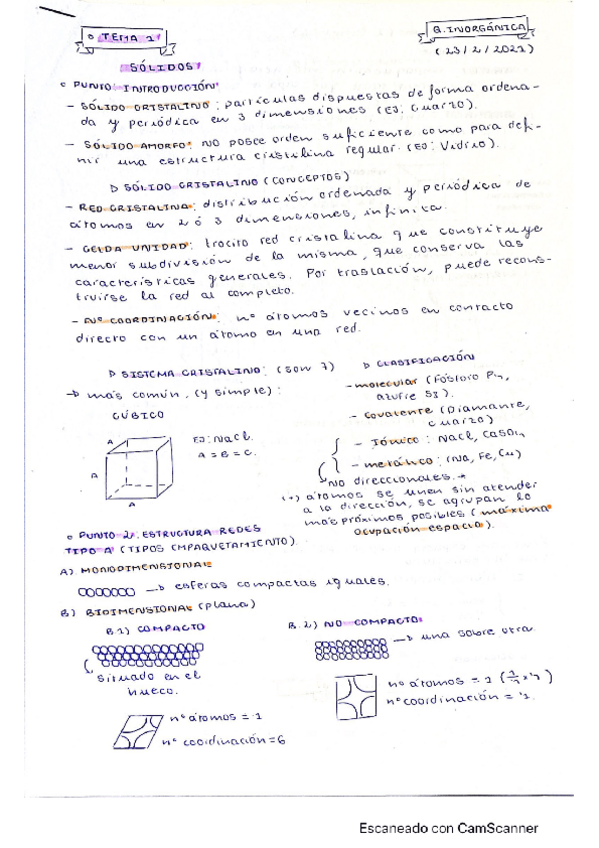 O TEMA 1
Q. INORGÁNICA
(23/2/2021)
SÓLIDOS
PUNTO: INTRODUCCIÓN
- SÓLIDO CRISTALINO: partículas dispuestas de forma ordena-
da y periódica en 3 dimensiones (EJ: cuarzo).
- SÓLIDO AMORFO: NO posee orden suficiente como para defi-
nir una estructura cristalina regular. (EJ: Vidrio).
SÓLIDO CRISTALINO (CONCEPTOS)
- RED CRISTALINA: distribución ordenada y periódica de
átomos en 2 ó 3 dimensiones, infinita.
- CELDA UNIDAD: trocito red cristalina que constituye
menor subdivisión de la misma, que conserva las
características generales. Por traslación, puede recons-
truirse la red al completo.
- Nº COORDINACIÓN: nº átomos vecinos en contacto
directo con un átomo en una red.
SISTEMA CRISTALINO: (son 7)
→ más común, (y simple):
CÚBICO
A
A
A
EJ: NaCl.
A = B = C.
CLASIFICACIÓN
- molecular (Fósforo P4,
azufre S8).
- covalente (Diamante,
cuarzo)
- Iónico: NaCl, CaSO4
- metálico: (Na, Fe, Cu)
NO direccionales. →
(→) átomos se unen sin atender
a la dirección, se agrupan lo
más próximos posibles (máxima
ocupación espacio).
PUNTO 2: ESTRUCTURA REDES
TIPO A (TIPOS EMPAQUETAMIENTO).
A) MONODIMENSIONAL
→ esferas compactas iguales.
B) BIDIMENSIONAL (plana)
B.1) COMPACTO
situado en el
hueco.
nº átomos = 1
nº coordinación = 6
B.2) NO COMPACTO:
→ una sobre otra
nº átomos = 1 (1/4 x 4)
nº coordinación = 4.
Escaneado con CamScanner